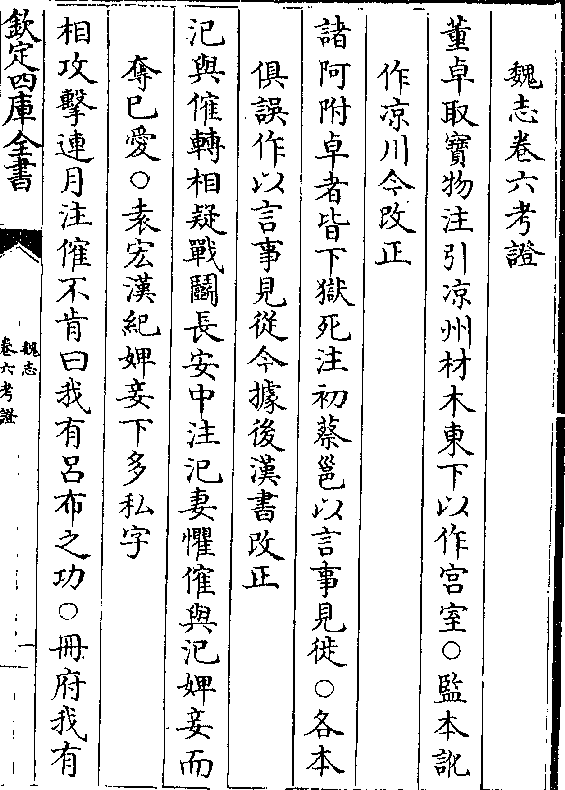 魏志卷六考證
董卓取寶物注引凉州材木東下以作宫室○監本訛
作凉川今改正
諸阿附卓者皆下獄死注初蔡邕以言事見徙○各本
俱誤作以言事見從今據後漢書改正
汜與傕轉相疑戰鬬長安中注汜妻懼傕與汜婢妾而
奪已愛○袁宏漢紀婢妾下多私字
相攻擊連月注傕不肯曰我有吕布之功○冊府我有
欽定四庫全書
魏志
卷六考證
一